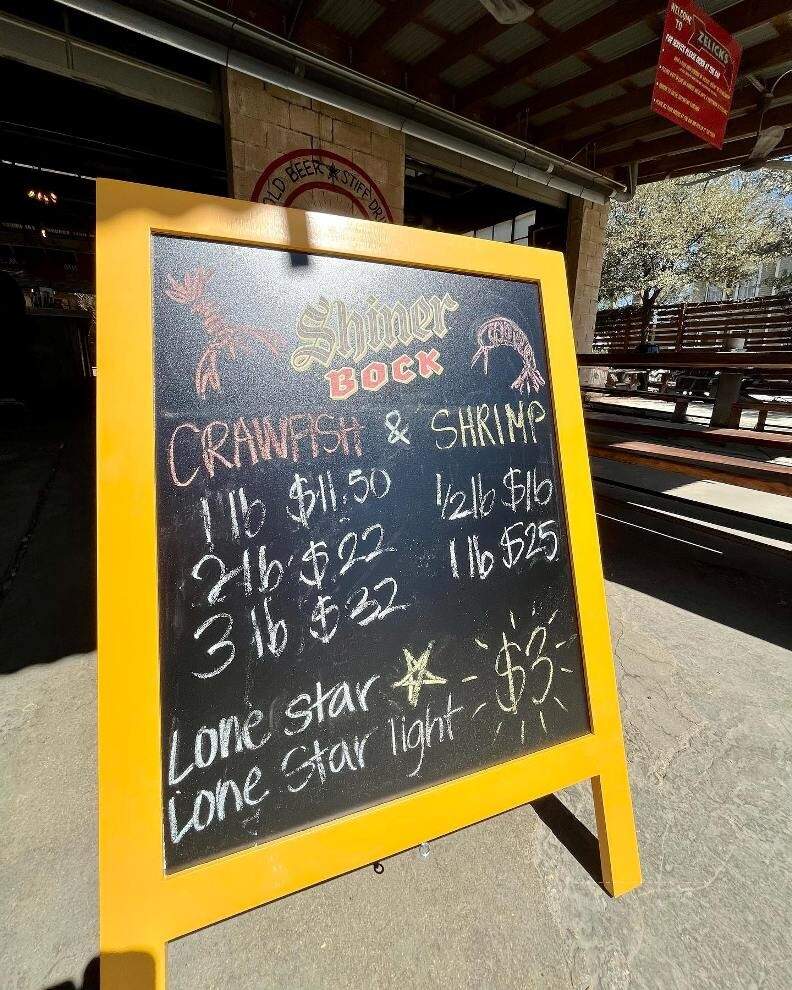 WELCOME
TO
ZELICKS
OLD BEER ★ STIFF DRI
Shiner
BOCK
CRAWFISH & SHRIMP
1 lb $11.50
2 lb $22
3 lb $32
1/2 lb $16
1 lb $25
Lone Star
Lone Star light
$3